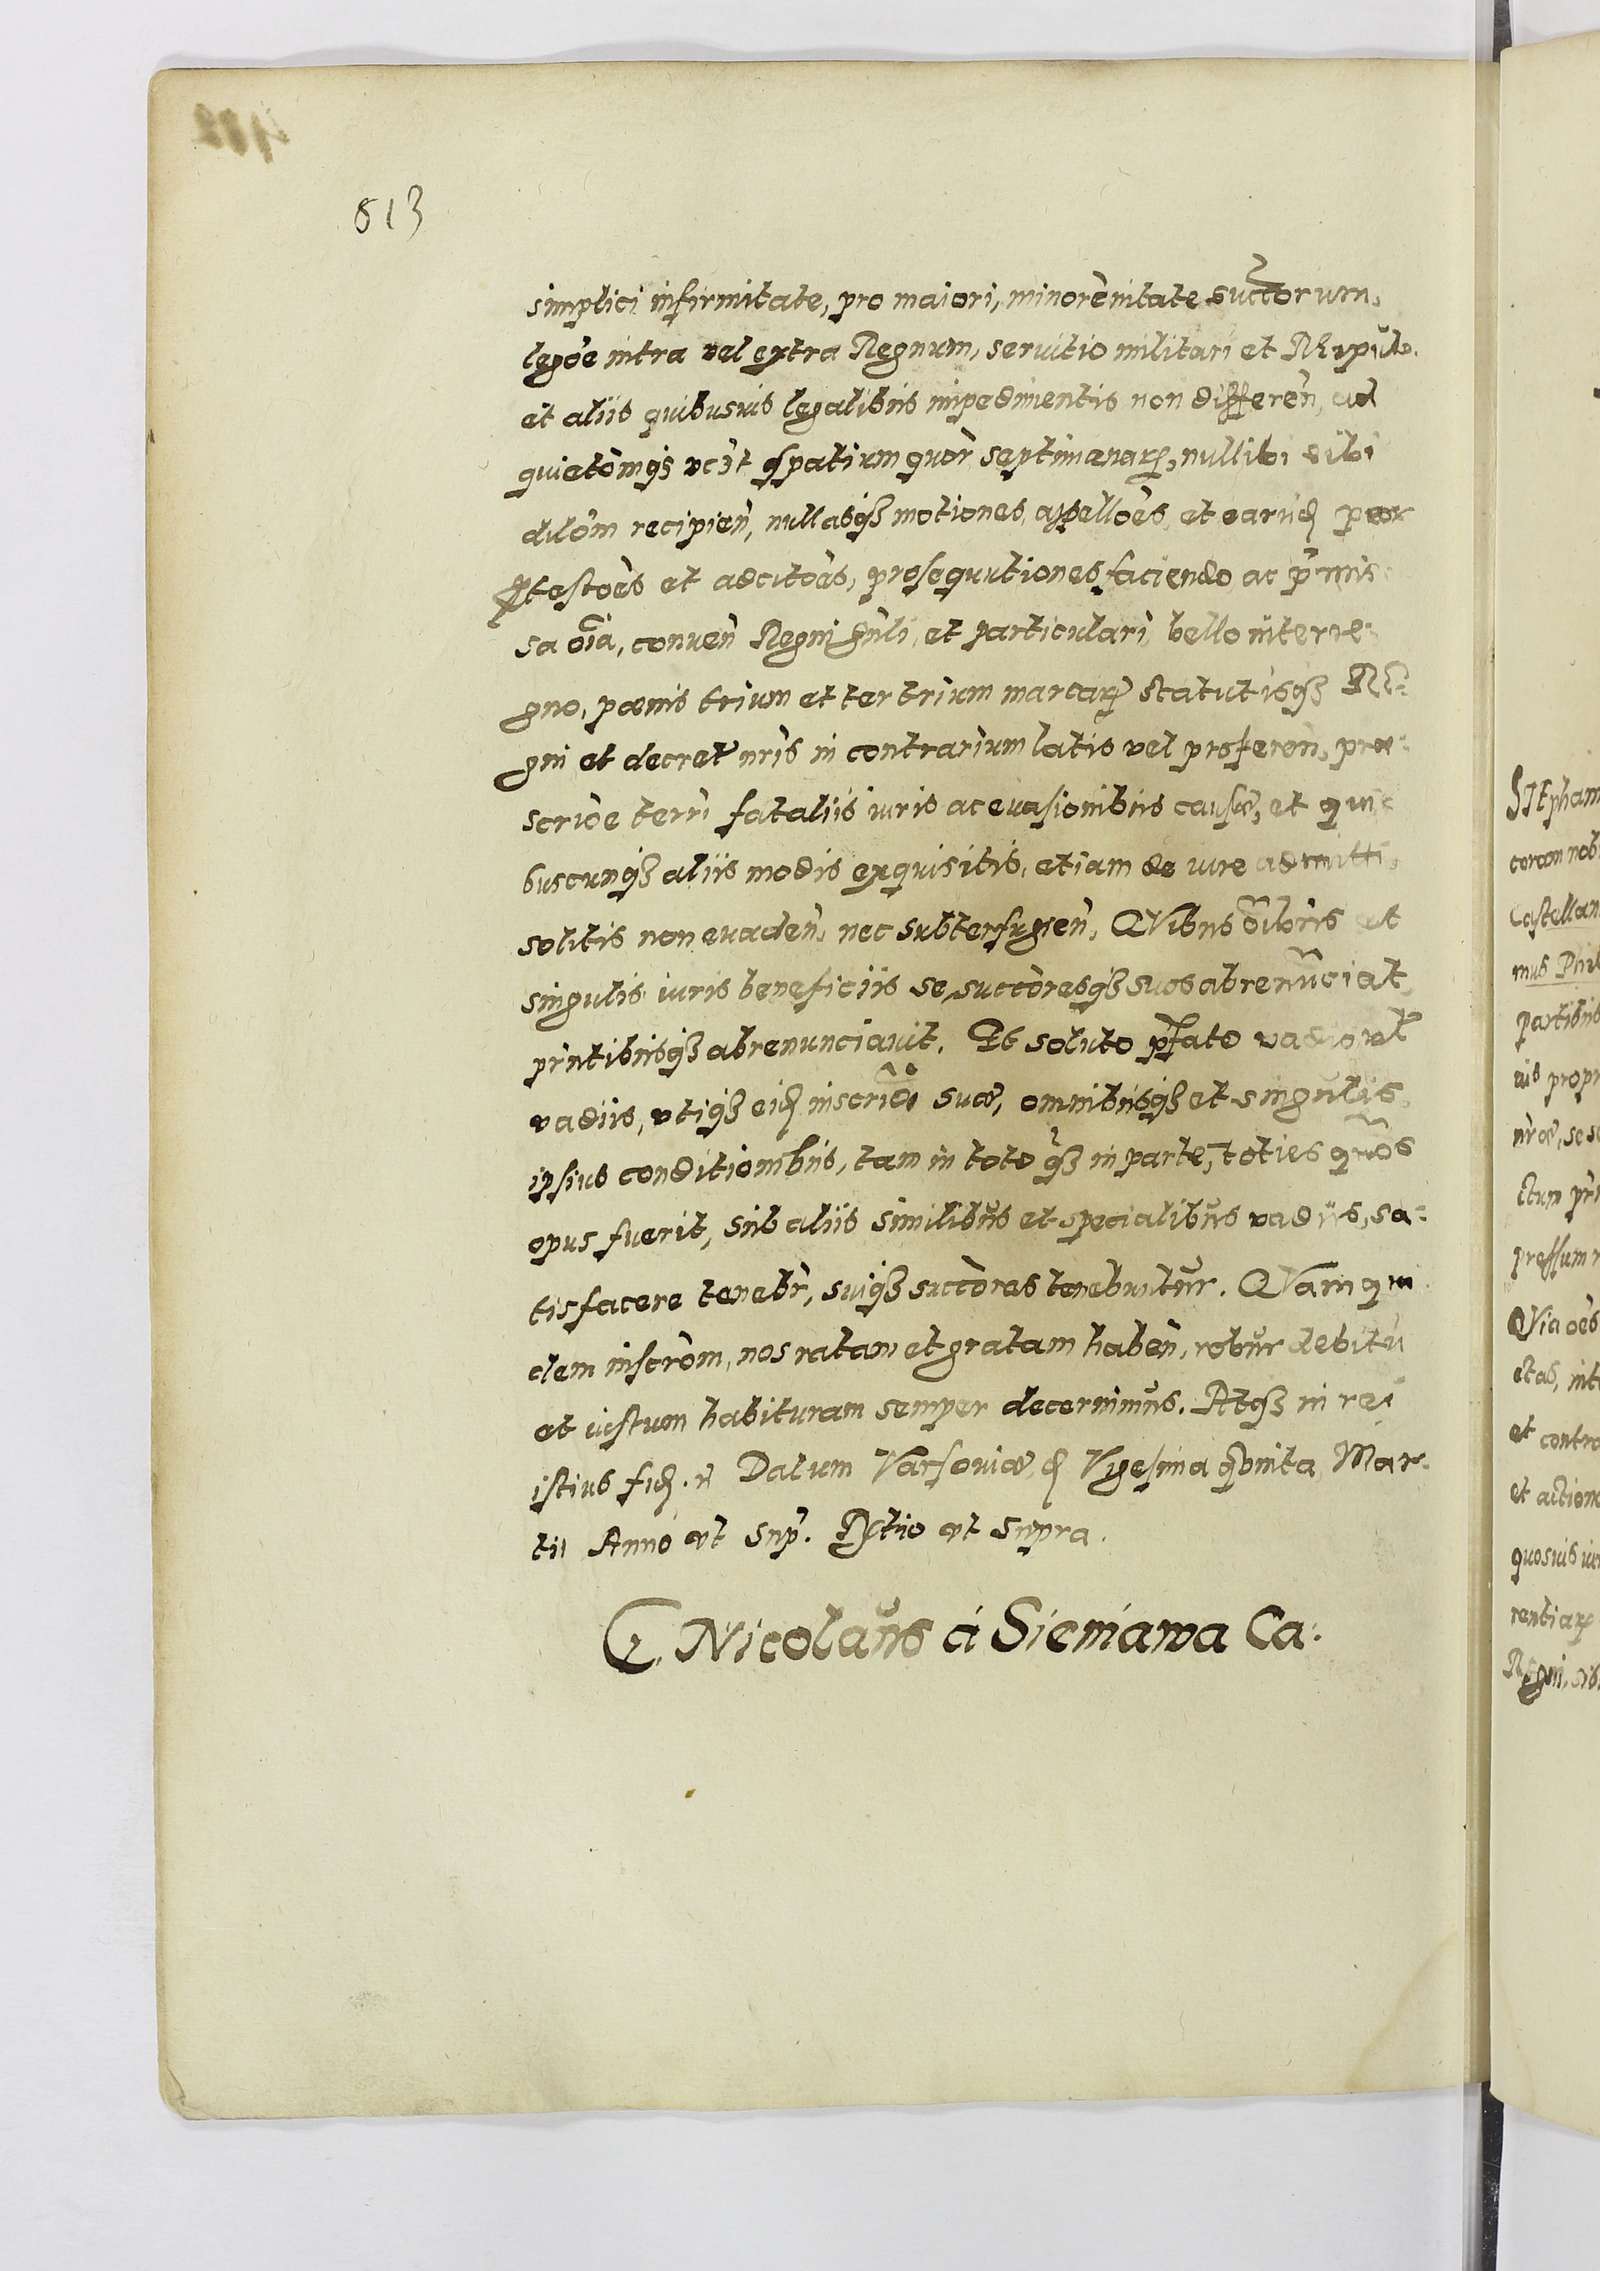 813
simplici infirmitate, pro maiori, minorenitate succtorum,
legōe intra vel extra Regnum, seruitio militari et REipub.
et aliis quibusuis legalibus impedimentis non differeñ, ad
spatium quor septimanarum, nullibi sibi
dilōm recipieñ, nullasq3 motiones, appellōes, et earūd
testōes et adcitōes, prosequutiones faciendo ac p̄mis:
sa oīa, conueñ Regni gn̄li, et particulari bello interre:
gno, pœnis trium et ter trium marcarum statutisq3 Re:
gni et decret nr̄is in contrarium latis vel profereñ, præ:
scripōe terr̄ fataliis iuris ac euasionibus causæ, et qui:
buscunq3 aliis modis exquisitis, etiam de iure admitti
solitis non euadeñ, nec subterfugieñ, QVibus oībus et
singulis iuris beneficiis se, succōresq3 suos abrenūciat,
pn̄tibusq3 abrenunciauit. Et soluto pfato vadio vel
vadiis, vtiq3 eid inscripōi suæ, omnibusq3 et singulis
ipsius conditionibus, tam in toto q3 in parte, toties quōs
opus fuerit, sub aliis similibus et specialibus vadiis, sa:
tisfacere tenebr̄, suiq3 succōres tenebuntur. QVam qui
dem inscrōm, nos ratam et gratam habeñ, robur debitū
et iustum habituram semper decernimus. Atq3 in rei
istius fid. Datum Varsouiæ, d Vigesima quinta Mar:
tii Anno vt sup. Rltio vt supra.
Nicolaus à Sieniawa Ca:
STEphan
coram nob
Castellan
mus Phil
partibus
uis propr
nr̄æ, se s
ctum pr
pressum
QVia oēs
ctas, int
et contra
et action
quosuis iu
rentiarum
Regni,